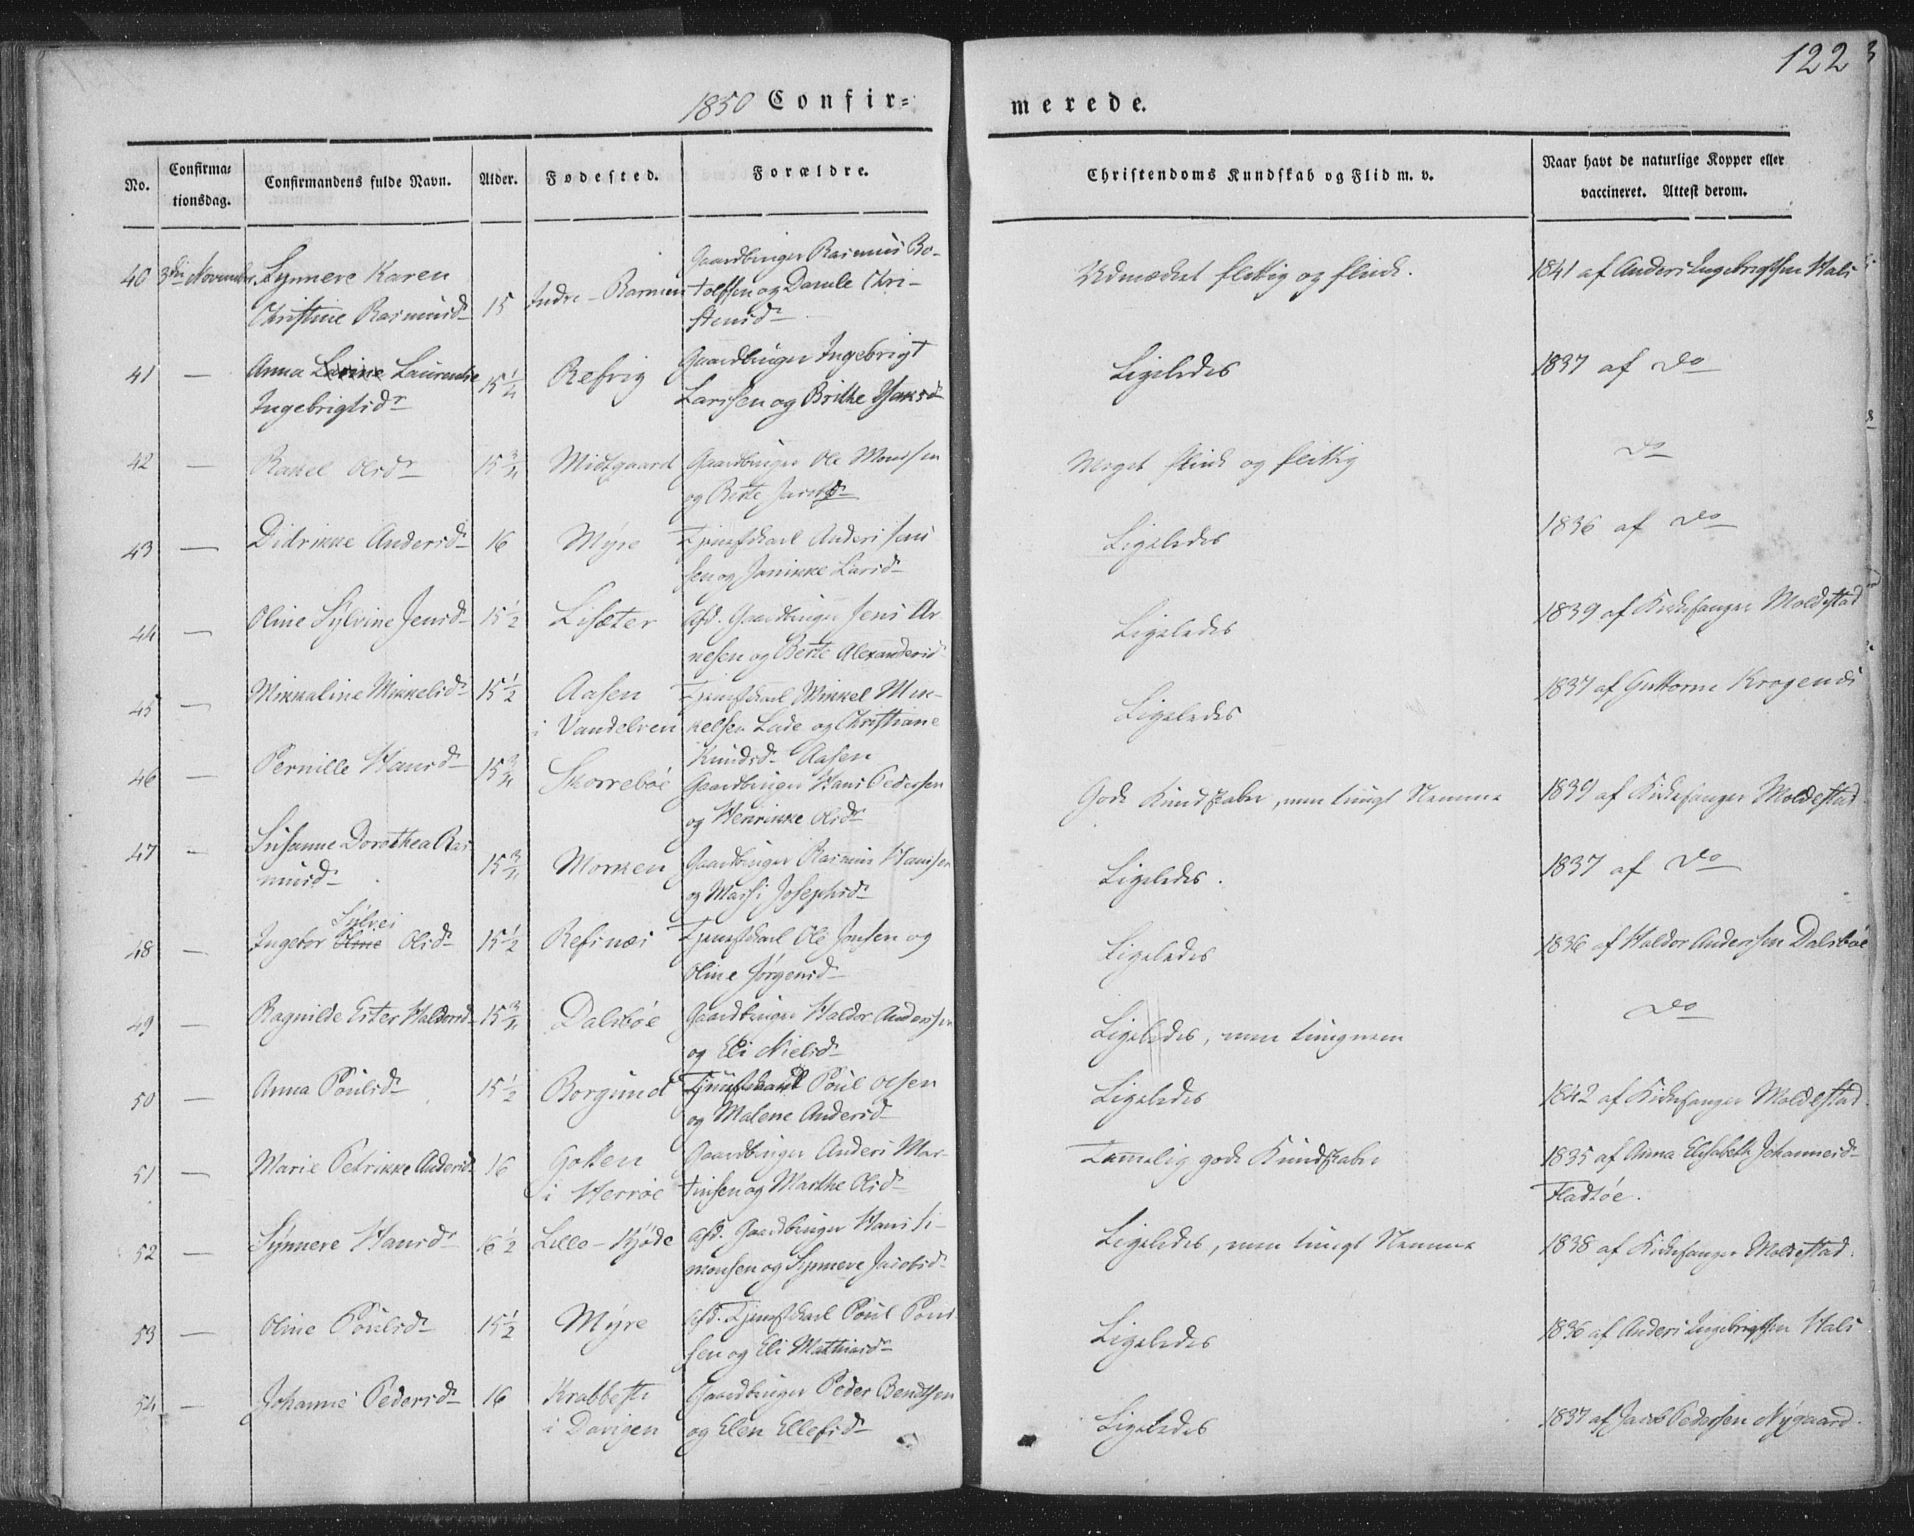 122
1850 Confir=
merede.
No.
Confirma=
tionsdag.
Confirmandens fulde Navn.
Alder.
Fødested.
Forældre.
Christendoms Kundskab og Flid m. v.
Naar havt de naturlige Kopper eller
vaccineret. Attest derom.
40 3die November. Synnere Karen
Christine Rasmusdr 15 Indre-Barmen
Gaardbruger Rasmus Bo-
tolfsen og Damle Chri-
stensdr
Udmærket flittig og flink.
1841 af Anders Ingebrigtsen Hals
41 — Anna Larine Laurentse
Ingebrigtsdr 15 1/4 Refvig
Gaardbruger Ingebrigt
Larssen og Brithe Hansdr
Ligeledes
1837 af Do
42 — Rakel Olsdr 15 3/4 Midtgaard
Gaardbruger Ole Monssen
og Berte Jacobsdr
Meget flink og flittig
Do
43 — Didrikke Andersdr 16 Myre
Tjenestkarl Anders Jens
sen og Janikke Larsdr
Ligeledes
1836 af Do
44 — Oline Sylvine Jensdr 15 1/2 Lisæter
Afd. Gaardbruger Jens Ar
nesen og Berte Alexandersdr
Ligeledes
1839 af Kirkesanger Moldestad
45 — Mikkaline Mikkelsdr 15 1/2 Aasen
i Vandelven
Tjenestkarl Mikkel Mik-
kelsen Lade og Christiane
Knudsdr Aasen
Ligeledes
1837 af Guttorm Krogenæs
46 — Pernille Hansdr 15 3/4 Skorrebøe
Gaardbruger Hans Pederssen
og Henrikke Olsdr
Gode Kundskaber, men tungt Nemme
1839 af Kirkesanger Moldestad
47 — Susanne Dorothea Ras
musdr 15 3/4 Morken
Gaardbruger Rasmus Hanssen
og Massi Josephsdr
Ligeledes.
1837 af Do
Sylvei
48 — Ingebor Oline Olsdr 15 1/2 Refsnæs
Tjenestkarl Ole Jonsen og
Oline Jørgensdr
Ligeledes
1836 af Haldor Anderssen Dalsbøe
49 — Ragnilde Ester Haldorsdr 15 3/4 Dalsbøe
Gaardbruger Haldor Anderssen
og Eli Nielsdr
Ligeledes, men tungnem
Do
50 — Anna Poulsdr 15 1/2 Borgund
Tjenestkarl Poul Olsen
og Malene Andersdr
Ligeledes
1842 af Kirkesanger Moldestad.
51 — Marie Petrikke Andersdr 16 Gotten
i Herrøe
Gaardbruger Anders Mar-
tinsen og Marthe Olsdr
Temmelig gode Kundskaber
1835 af Anna Elisabeth Johannesdr
Fladsøe.
52 — Synnere Hansdr 16 1/2 Lille-Kjøde
Afd. Gaardbruger Hans Si-
monsen og Synnere Jacobsdr
Ligeledes, men tungt Nemme
1838 af Kirkesanger Moldestad.
53 — Oline Poulsdr 15 1/2 Myre
Afd. Tjenestkarl Poul Pouls
sen og Eli Mathiasdr
Ligeledes
1836 af Anders Ingebrigtsen Hals
54 — Johanne Pedersdr 16 Krabbest
i Davigen
Gaardbruger Peder Bendtsen
og Elen Ellefsdr
Ligeledes
1837 af Jacob Pederssen Nygaard.